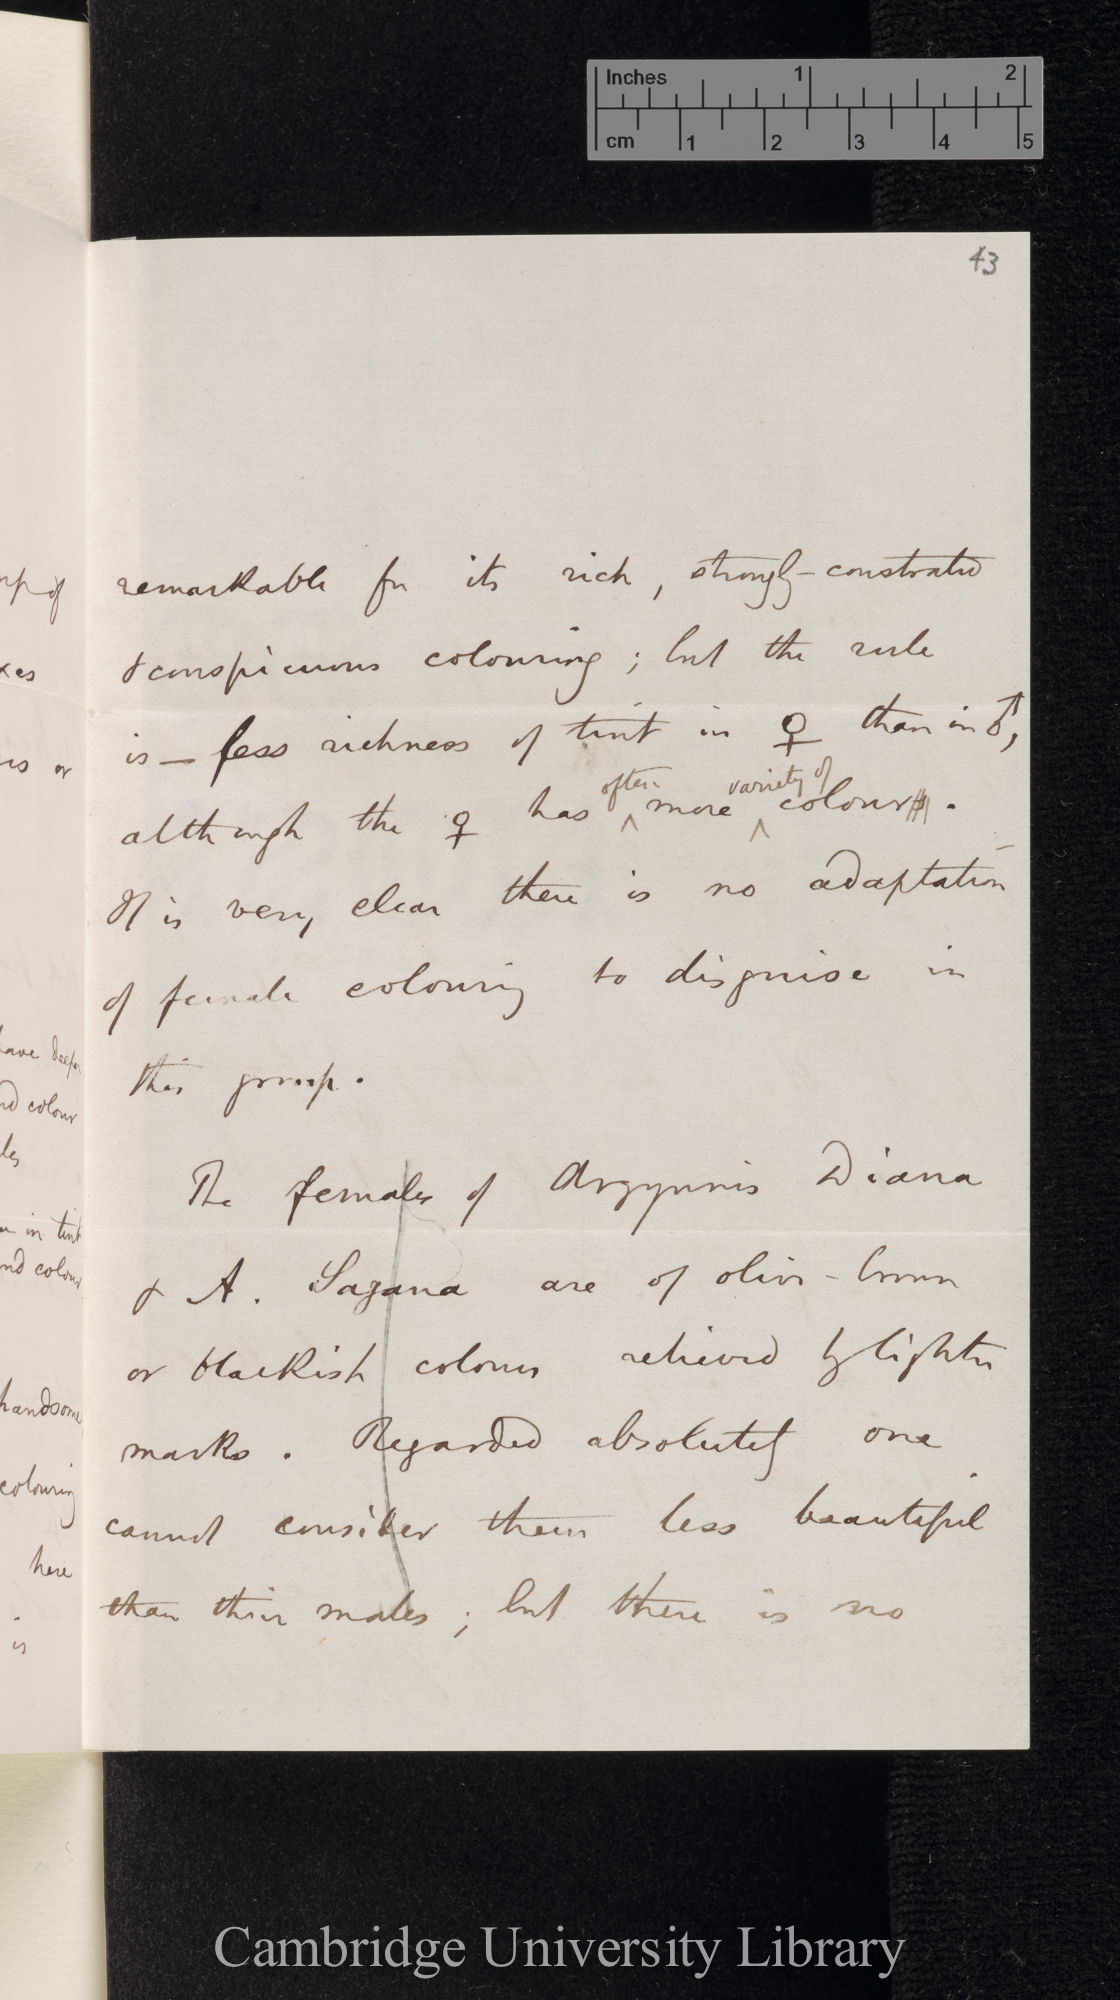 Inches 1 2
cm 1 2 3 4 5
43
remarkable for its rich, strongly-constrated
& conspicuous colouring; but the rule
is — less richness of tint in ♀ than in ♂,
although the ♀ has often more variety of colour.
It is very clear there is no adaptation
of female colouring to disguise in
this group.
The females of Argynnis Diana
& A. Sagana are of olive-brown
or blackish colour relieved by lighter
marks. Regarded absolutely one
cannot consider them less beautiful
than their males; but there is no
xes
or
have deeper
nd colour
in tint
nd colour
handsome
colouring
here
is
Cambridge University Library